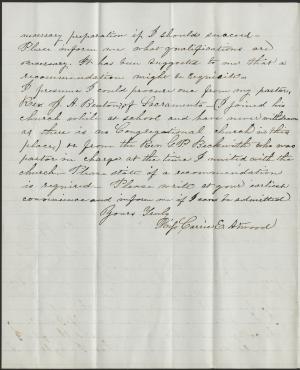 necessary preparation if I should succeed -
Please inform me what qualifications are
necessary. It has been suggested to me that a
recommendation might be requisite -
I presume I could procure one from my pastor,
Rev. J. A. Benton, of Sacramento - (I joined his
church while at school and have never withdrawn
as there is no Congregational church in this
place,) or from the Rev. E. P. Beckwith who was
pastor in charge at the time I united with the
church - Please state if a recommendation
is required - Please write at your earliest
convenience and inform me if I can be admitted
Yours Truly
Miss Carrie E. Atwood